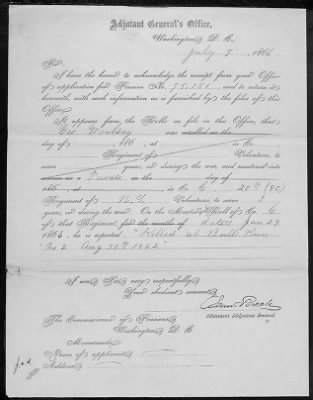 Adjutant General's Office,
Washington, D. C.,
July 7, 1866
Sir:
I have the honor to acknowledge the receipt from your Office
of application for Pension No. 75.151, and to return it
herewith, with such information as is furnished by the files of this
Office.
It appears from the Rolls on file in this Office, that
Geo. Woolsey was enrolled on the
day of 186 , at in Co.
Regiment of Volunteers, to serve
years, or during the war, and mustered into
service as a Private on the day of
186 , at , in Co. C. 20th (80)
Regiment of N.Y. Volunteers, to serve 3
years, or during the war. On the Muster Roll of Co. C
of that Regiment, for the months of dated Jan 29,
1864, he is reported "Killed at Bull Run
No 2 Aug 30th 1862"
I am, Sir, very respectfully,
Your obedient servant,
Assistant Adjutant General.
The Commissioner of Pensions,
Washington, D. C.
Memoranda:
Name of applicant,
Address,